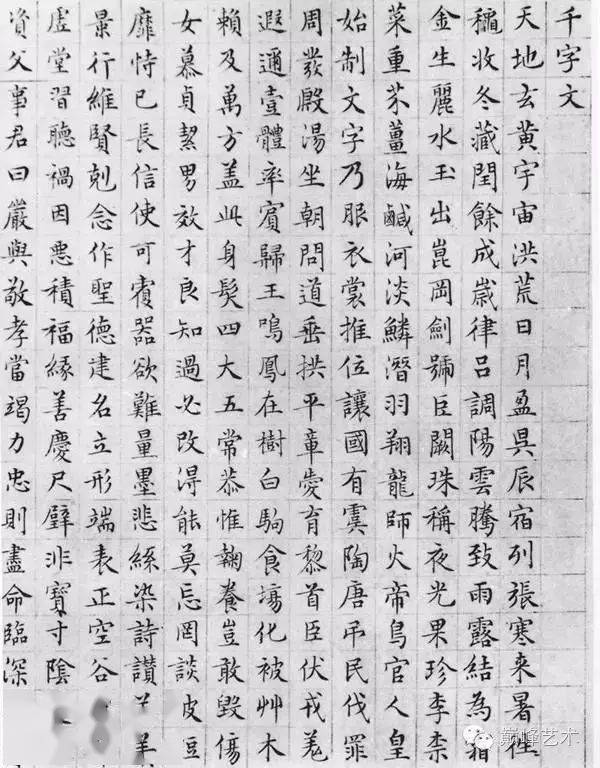 千字文
天地玄黄宇宙洪荒日月盈昃辰宿列張寒来暑往
穐收冬藏閏餘成歲律呂調陽雲騰致雨露結為霜
金生麗水玉出崑岡劍號巨闕珠稱夜光果珍李柰
菜重芥薑海鹹河淡鱗潛羽翔龍師火帝鳥官人皇
始制文字乃服衣裳推位讓國有虞陶唐弔民伐罪
周發殷湯坐朝問道垂拱平章愛育黎首臣伏戎羌
遐邇壹體率賓歸王鳴鳳在樹白駒食場化被艸木
賴及萬方盖此身髮四大五常恭惟鞠養豈敢毀傷
女慕貞絜男效才良知過必改得能莫忘罔談
靡恃己長信使可覆器欲難量墨悲絲染詩讃羊
景行維賢剋念作聖德建名立形端表正空谷
虛堂習聽禍因惡積福緣善慶尺璧非寶寸陰
資父事君曰嚴與敬孝當竭力忠則盡命臨深
巅峰艺术